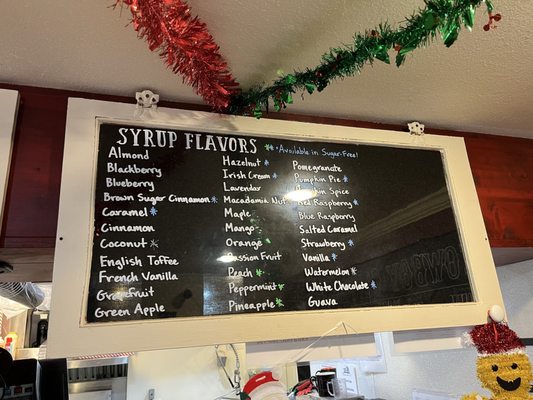 SYRUP FLAVORS
* Available in Sugar-Free!
Almond
Blackberry
Blueberry
Brown Sugar Cinnamon *
Caramel *
Cinnamon
Coconut *
English Toffee
French Vanilla
Grapefruit
Green Apple
Hazelnut *
Irish Cream *
Lavendar
Macadamia Nut *
Maple
Mango
Orange
Passion Fruit
Peach *
Peppermint *
Pineapple *
Pomegranate
Pumpkin Pie *
Pumpkin Spice
Red Raspberry *
Blue Raspberry
Salted Caramel
Strawberry *
Vanilla *
Watermelon *
White Chocolate *
Guava